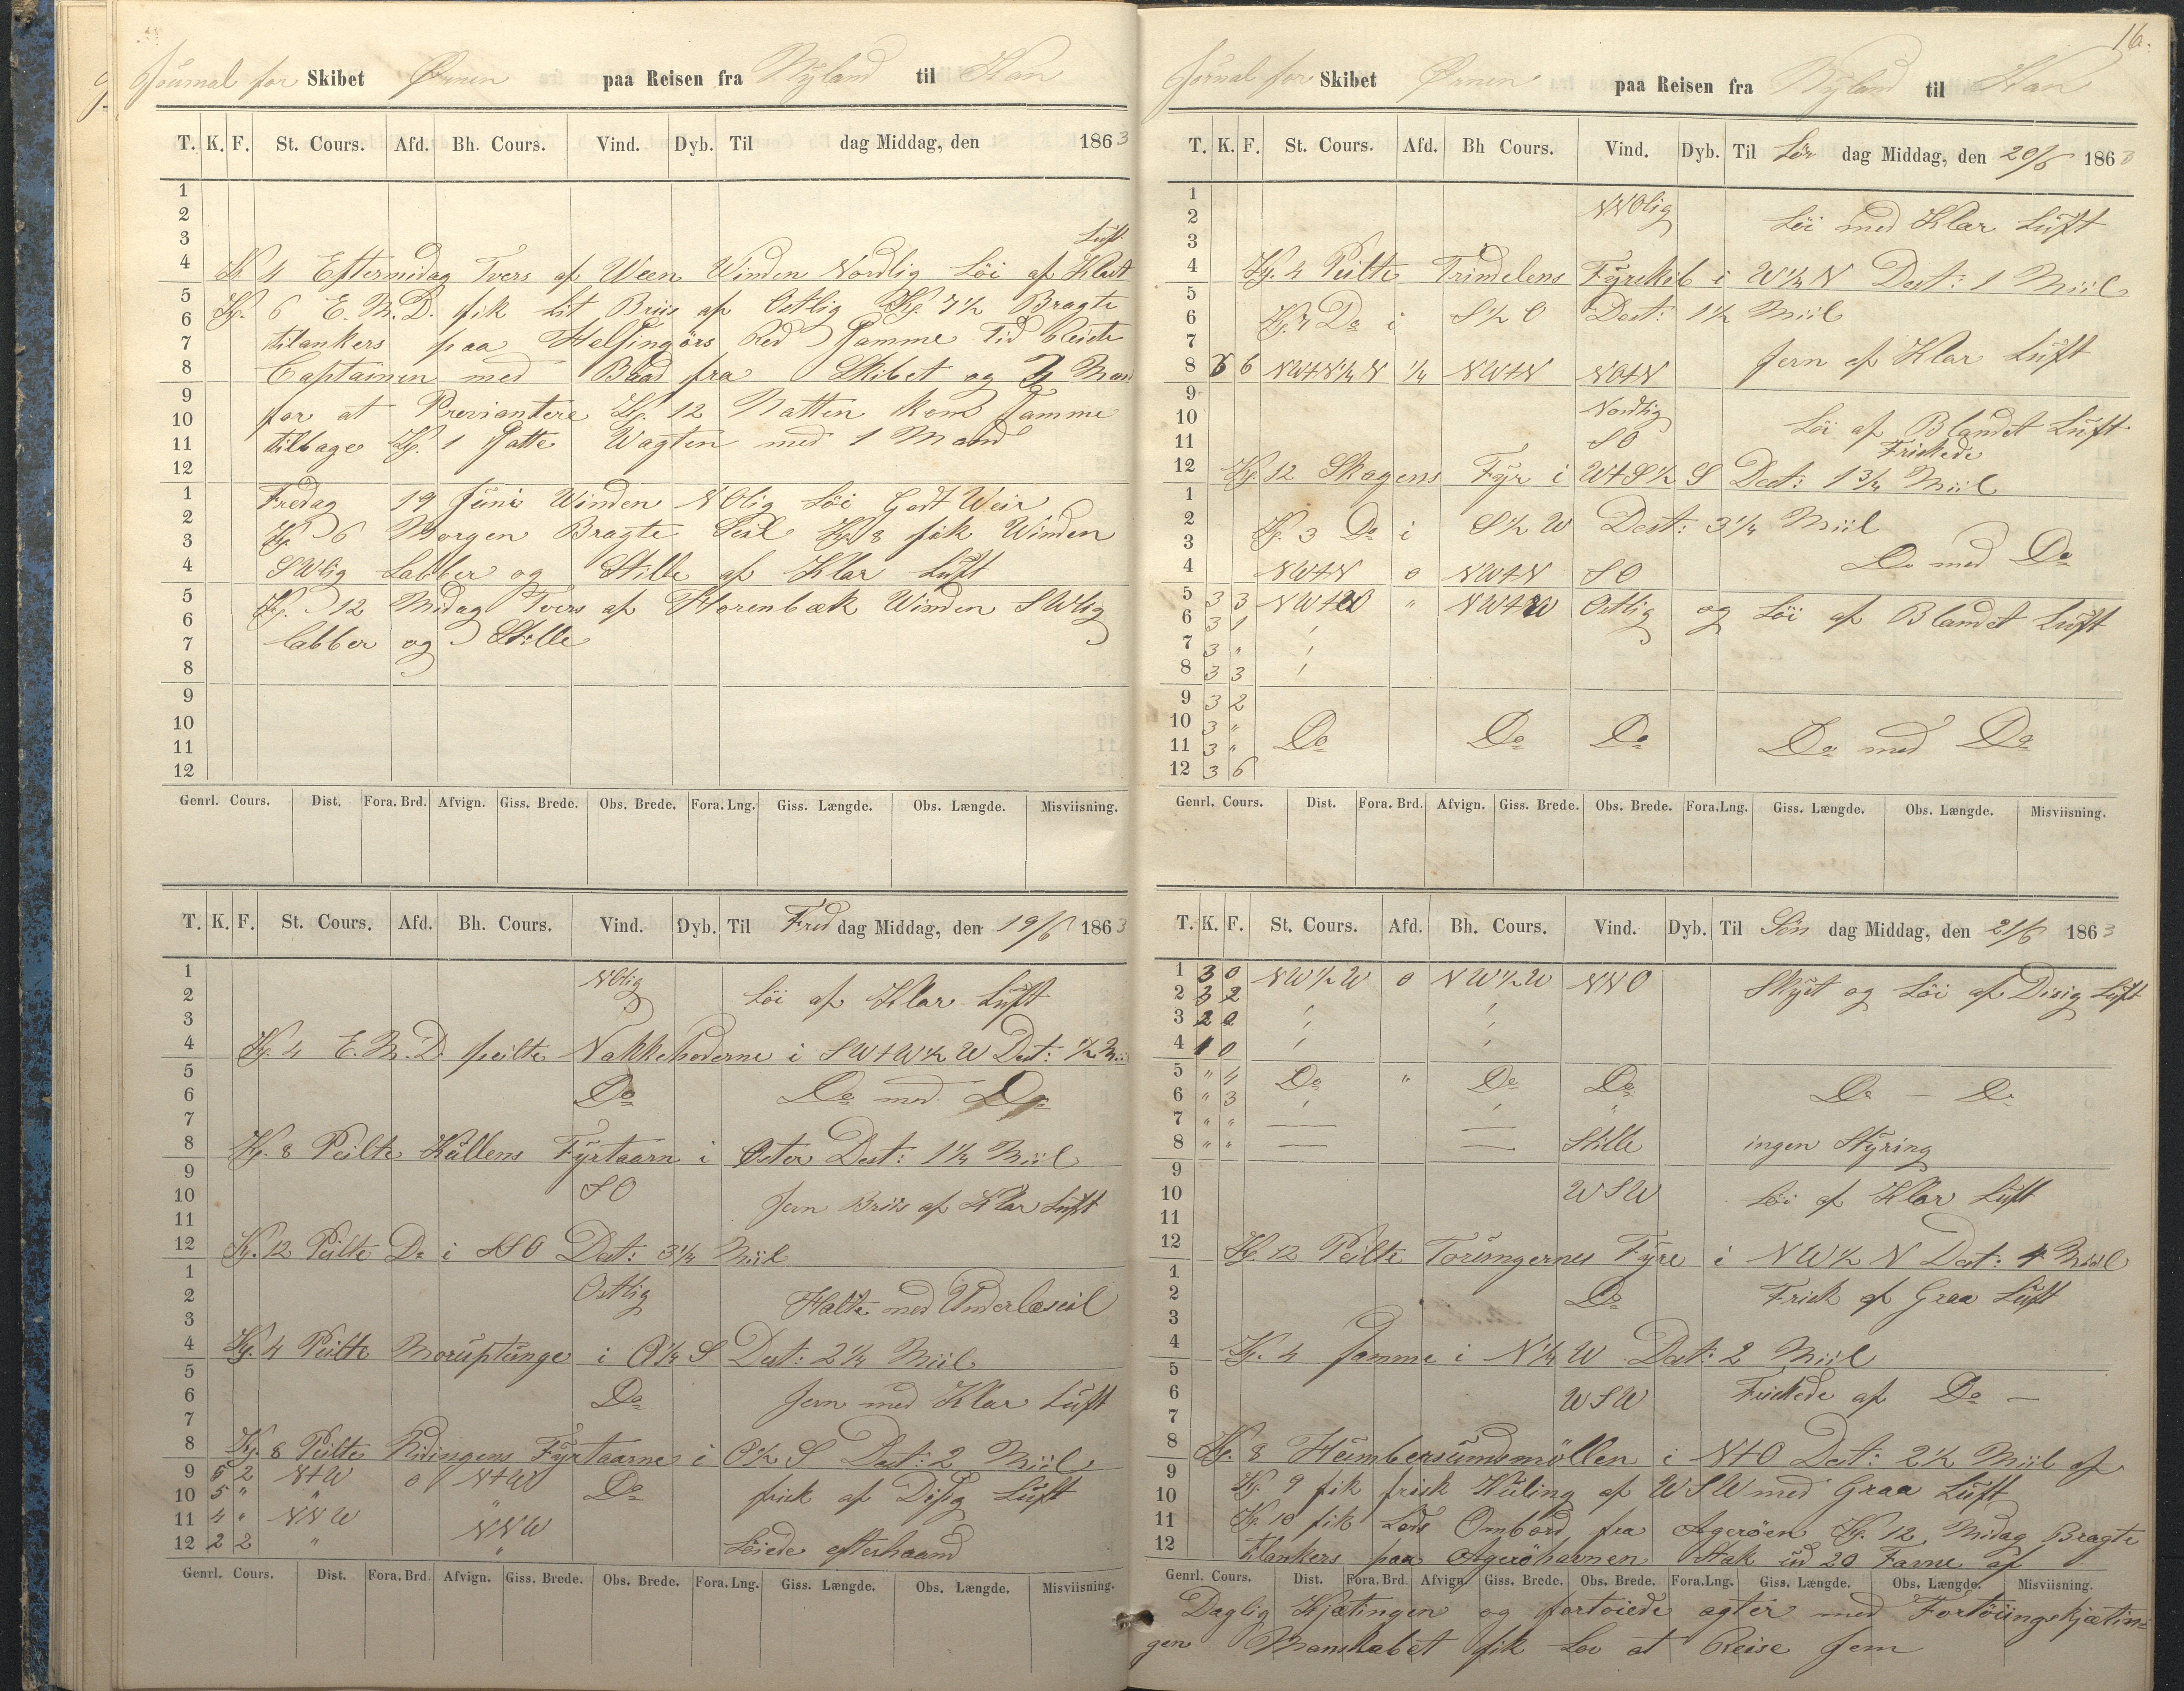 Journal for Skibet Ørnen paa Reisen fra Nyland til Kan
T. K. F. St. Cours. Afd. Bh. Cours. Vind. Dyb. Til dag Middag, den 1863
1
2
3 Luft
4 Kl 4 Eftermidag Tvers af Ween Winden Nordlig Löi af Klart
5 Kl. 6 E. M. D. fik lit Briis af Ostlig Kl. 7½ Bragte
6 tilankers paa Helsingörs Red Samme Tid Reiste
7
8 Captainen med Baad fra Skibet og 2 Man
9 for at Proviantere Kl. 12 Natten kom Samme
10
11 tilbage Kl. 1 Satte Wagten med 1 Mand
12
1 Fredag 19 Juni Winden NOlig Löi Godt Weir
2 Kl 6 Morgen Bragte Seil Kl 8 fik Winden
3
4 SWlig Labber og Stille af Klar Luft
5 Kl. 12 Midag Tvers af Horenbæk Winden SWlig
6
7 labber og Stille
8
9
10
11
12
Genrl. Cours. Dist. Fora. Brd. Afvign. Giss. Brede. Obs. Brede. Fora. Lng. Giss. Længde. Obs. Længde. Misviisning.
T. K. F. St. Cours. Afd. Bh. Cours. Vind. Dyb. Til Fred dag Middag, den 19/6 1863
1 NOlig
2 Löi af Klar Luft
3
4 Kl. 4 E. M. D. peilte Nakkehoderne i SWtW½W Dest: ½ Mii
5
6 Do Do med Do
7
8 Kl. 8 Peilte Kullens Fyrtaarn i Öster Dest: 1¼ Miil
9
10 SO Jevn Briis af Klar Luft
11
12 Kl. 12 Peilte Do i SSO Dest: 3¼ Miil
1
2 Ostlig Halte med Underlæseil
3
4 Kl 4 Peilte Moruptunge i O¼S Dest: 2¼ Miil
5
6 Do Jevn med Klar Luft
7
8 Kl. 8 Peilte Nidingens Fyrtaarne i O½S Dest: 2 Miil
9 5 2 NtW 0 NtW Do frisk af Disig Luft
10 5 " " "
11 4 " NNW NNW
12 2 2 " " Löiede efterhaand
Genrl. Cours. Dist. Fora. Brd. Afvign. Giss. Brede. Obs. Brede. Fora. Lng. Giss. Længde. Obs. Længde. Misviisning.
16.
Journal for Skibet Ørnen paa Reisen fra Nyland til Kan
T. K. F. St. Cours. Afd. Bh Cours. Vind. Dyb. Til Lör dag Middag, den 20/6 1863
1 NNOlig
2 Löi med Klar Luft
3
4 Kl. 4 Peilte Trindelens Fyrskib i W¼N Dest: 1 Miil
5
6 Kl. 7 Do i S½O Dest: 1½ Miil
7
8 6 6 NWtN¼N ¼ NWtN NOtN Jevn af Klar Luft
9
10 Nordlig Löi af Blandet Luft
11 SO Friskede
12 Kl. 12 Skagens Fyr i WtS½S Dest: 1¾ Miil
1
2 Kl. 3 Do i S½W Dest: 3¼ Miil
3 Do med Do
4 NWtN 0 NWtN SO
5 3 3 NWtW " NWtW Ostlig og Löi af Blandet Luft
6 3 1
7 3 "
8 3 3
9 3 2
10 3 "
11 3 " Do Do Do Do med Do
12 3 6
Genrl. Cours. Dist. Fora. Brd. Afvign. Giss. Brede. Obs. Brede. Fora.Lng. Giss. Længde. Obs. Længde. Misviisning.
T. K. F. St. Cours. Afd. Bh. Cours. Vind. Dyb. Til Sön dag Middag, den 21/6 1863
1 3 0 NW½W 0 NW½W NNO Skyet og Löi af Disig Luft
2 3 2
3 2 2
4 1 0
5 " 4 Do " Do Do
6 " 3 Do — Do
7 " " — — "
8 " " — — Stille ingen Styring
9
10 WSW Löi af Klar Luft
11
12 Kl 12 Peilte Torungernes Fyre i NW½N Dest: 4 Miil
1
2 Do Frisk af Graa Luft
3
4 Kl. 4 Samme i N¼W Dest: 2 Miil
5
6 WSW Friskede af Do —
7
8 Kl. 8 Humbersundsmöllen i NtO Dest: 2½ Miil af
9 Kl. 9 fik frisk Kuling af WSW med Graa Luft
10
11 Kl. 10 fik Lods Ombord fra Ageröen Kl. 12 Midag Bragte
12 tilankers paa Ageröhavnen Stak ud 20 Favne af
Genrl. Cours. Dist. Fora. Brd. Afvign. Giss. Brede. Obs. Brede. Fora.Lng. Giss. Længde. Obs. Længde. Misviisning.
Daglig Kjætingen og fortoiede agter med Fortöiingskjætin-
gen Manskabet fik Lov at Reise Jem